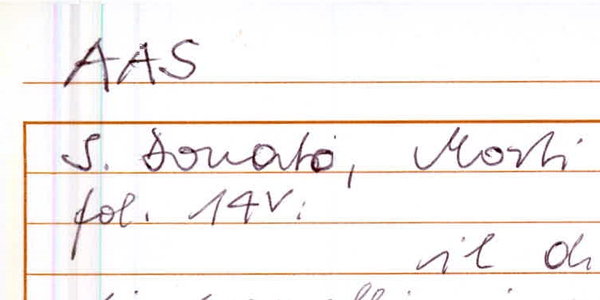 AAS
S. Donato, Morti
fol. 14v:
il di